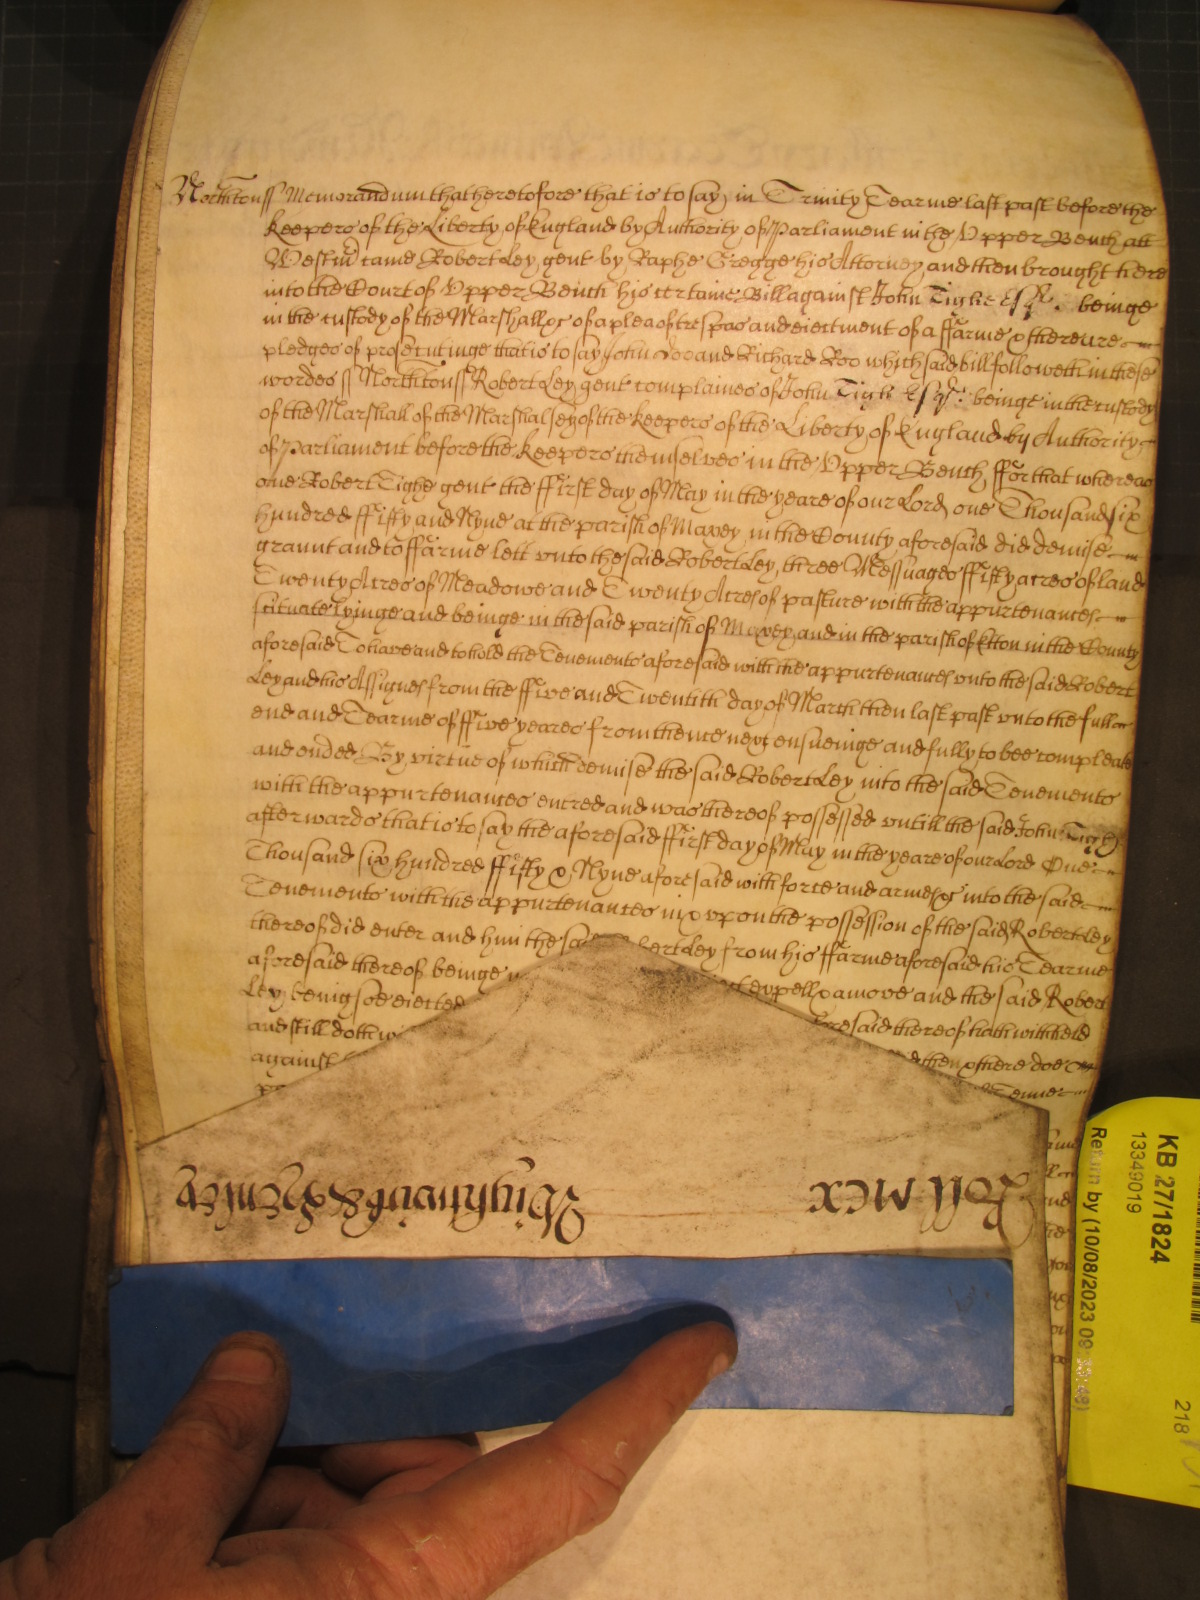 Northtonss Memorandum that heretofore that is to say in Trinity Tearme last past before the
Keepers of the Liberty of England by Authority of Parliament in the Upper Bench att
Westm came Robert Ley gent by Raphe Gregge his Attorney and then brought here
into the Court of Upper Bench his certaine Bill against John Tighe Esqr. beinge
in the custody of the Marshall &c of a plea of trespas and eiectment of a ffarme & there are
pledges of prosecutinge that is to say John Doo and Richard Roo which said bill followeth in these
wordes ss Northtonss Robert Ley gent complaines of John Tighe Esqr. beinge in the custody
of the Marshall of the Marshalsey of the Keepers of the Liberty of England by Authority
of Parliament before the Keepers themselves in the Upper Bench ffor that whereas
one Robert Tighe gent the ffirst day of May in the yeare of our Lord one Thousand six
hundred ffifty and Nyne at the parish of Maxey in the County aforesaid did demise
graunt and to ffarme lett unto the said Robert Ley three Messuages ffifty acres of land
Twenty Acres of Meadowe and Twenty Acres of pasture with the appurtenances
scituate lyinge and beinge in the said parish of Maxey and in the parish of Etton in the County
aforesaid To have and to hold the Tenements aforesaid with the appurtenances unto the said Robert
Ley and his Assignes from the ffive and Twentith day of March then last past unto the full
end and Tearme of ffive yeares from thence next ensueinge and fully to bee compleate
and ended By virtue of which demise the said Robert Ley into the said Tenements
with the appurtenances entred and was thereof possessed untill the said John Tighe
afterwards that is to say the aforesaid ffirst day of May in the yeare of our Lord One
Thousand six hundred ffifty & Nyne aforesaid with force and armes &c into the said
Tenements with the appurtenances in & upon the possession of the said Robert Ley
thereof did enter and him the said Robert Ley from his ffarme aforesaid his Tearme
aforesaid thereof beinge expell & amove and the said Robert
Ley being soe eiected aforesaid thereof hath withheld
and still doth then & there doe
against
Tenner
Roll mcx
Wightwick & Henley
KB 27/1824
13349019
Return by (10/08/2023
218